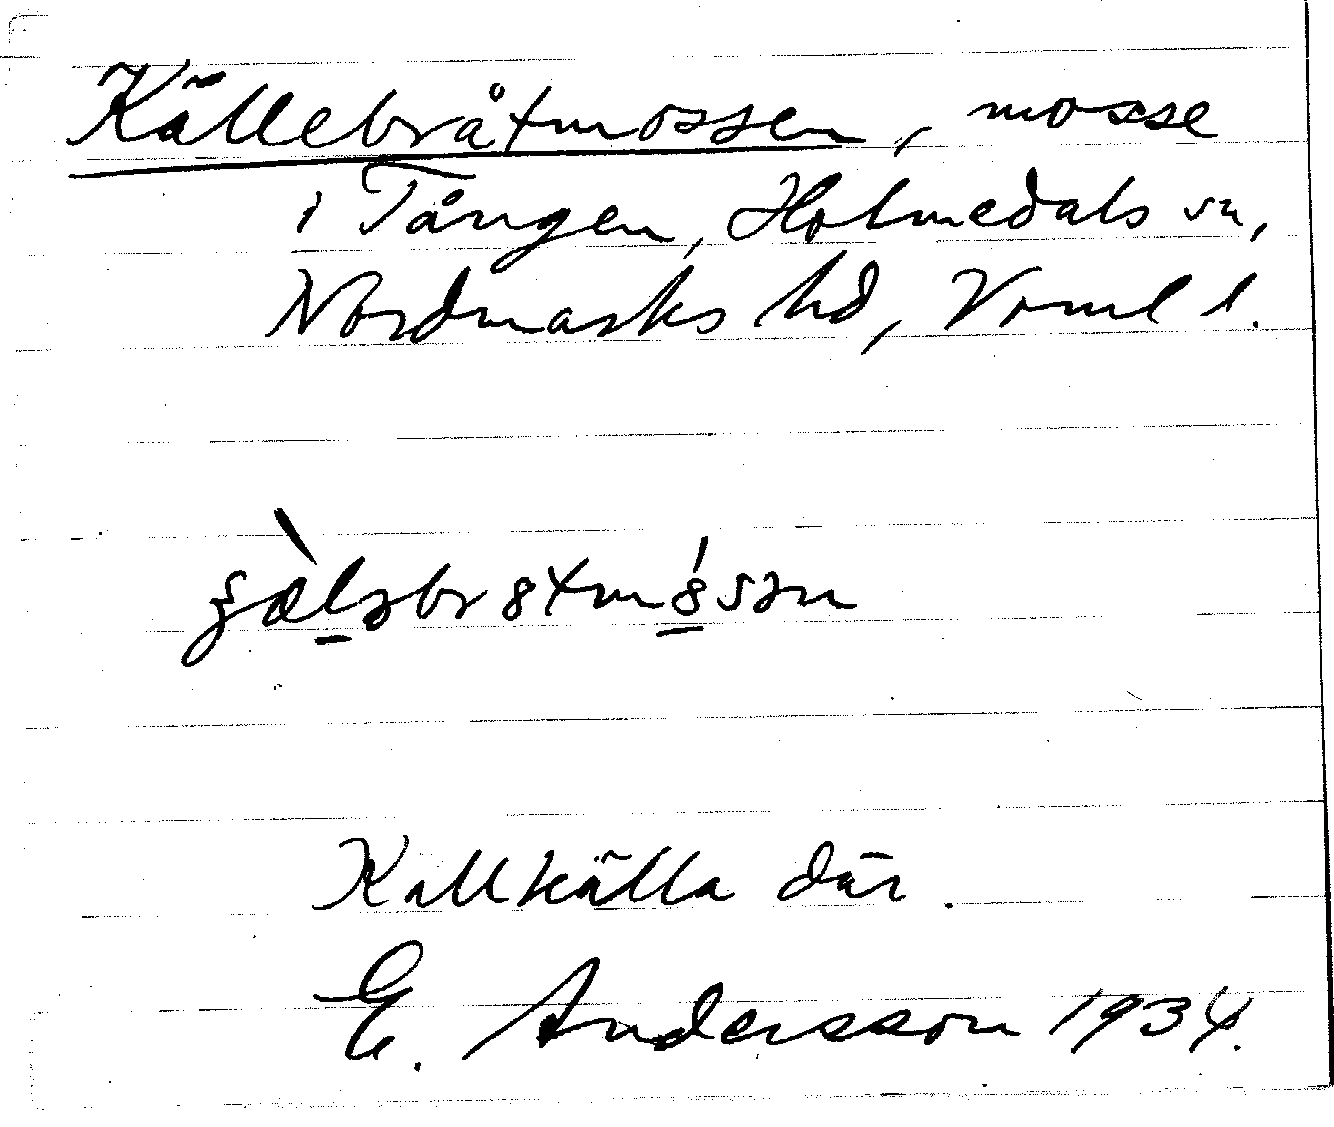 Källebråtmossen, mosse
i Tången, Holmedals sn,
Nordmarks hd, Värml l.
Kallkälla där.
E. Andersson 1934.